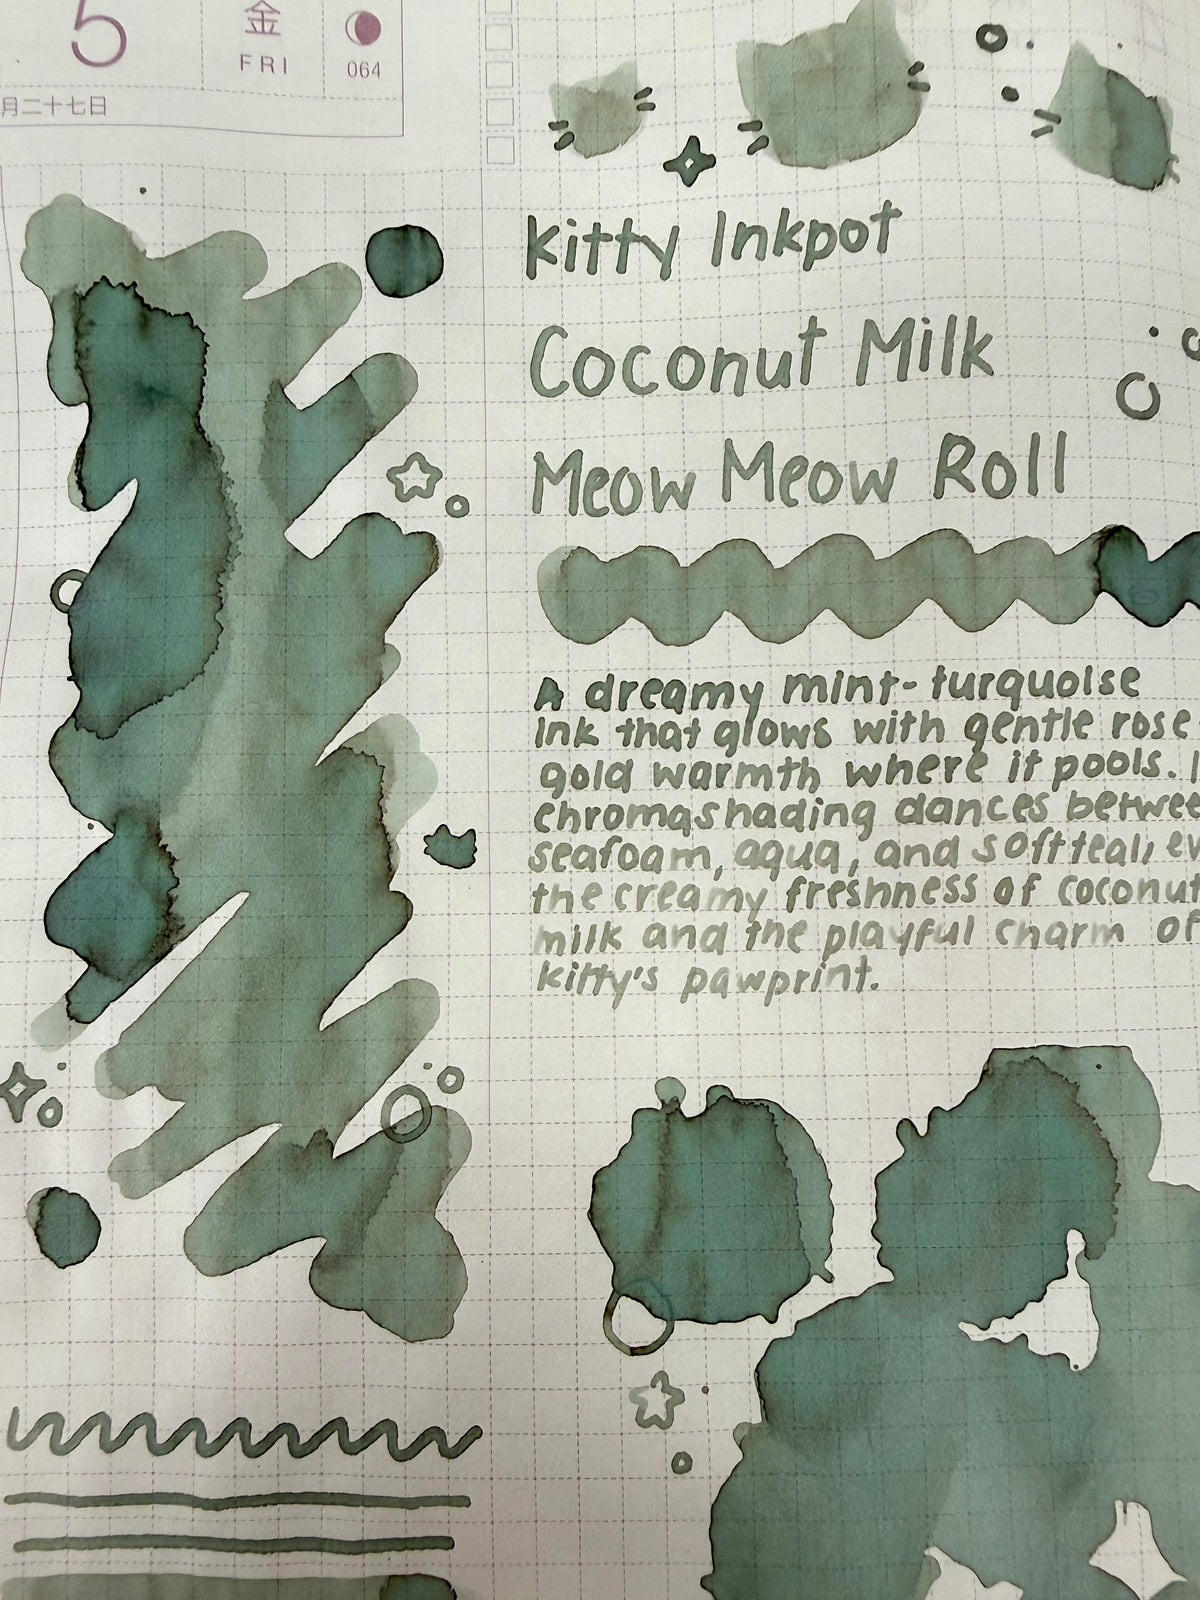 5
金
FRI
064
月二十七日
Kitty Inkpot
Coconut Milk
Meow Meow Roll
A dreamy mint-turquoise
ink that glows with gentle rose
gold warmth where it pools. I
chromashading dances betwee
seafoam, aqua, and soft teal, ev
the creamy freshness of coconut
milk and the playful charm of
kitty's pawprint.